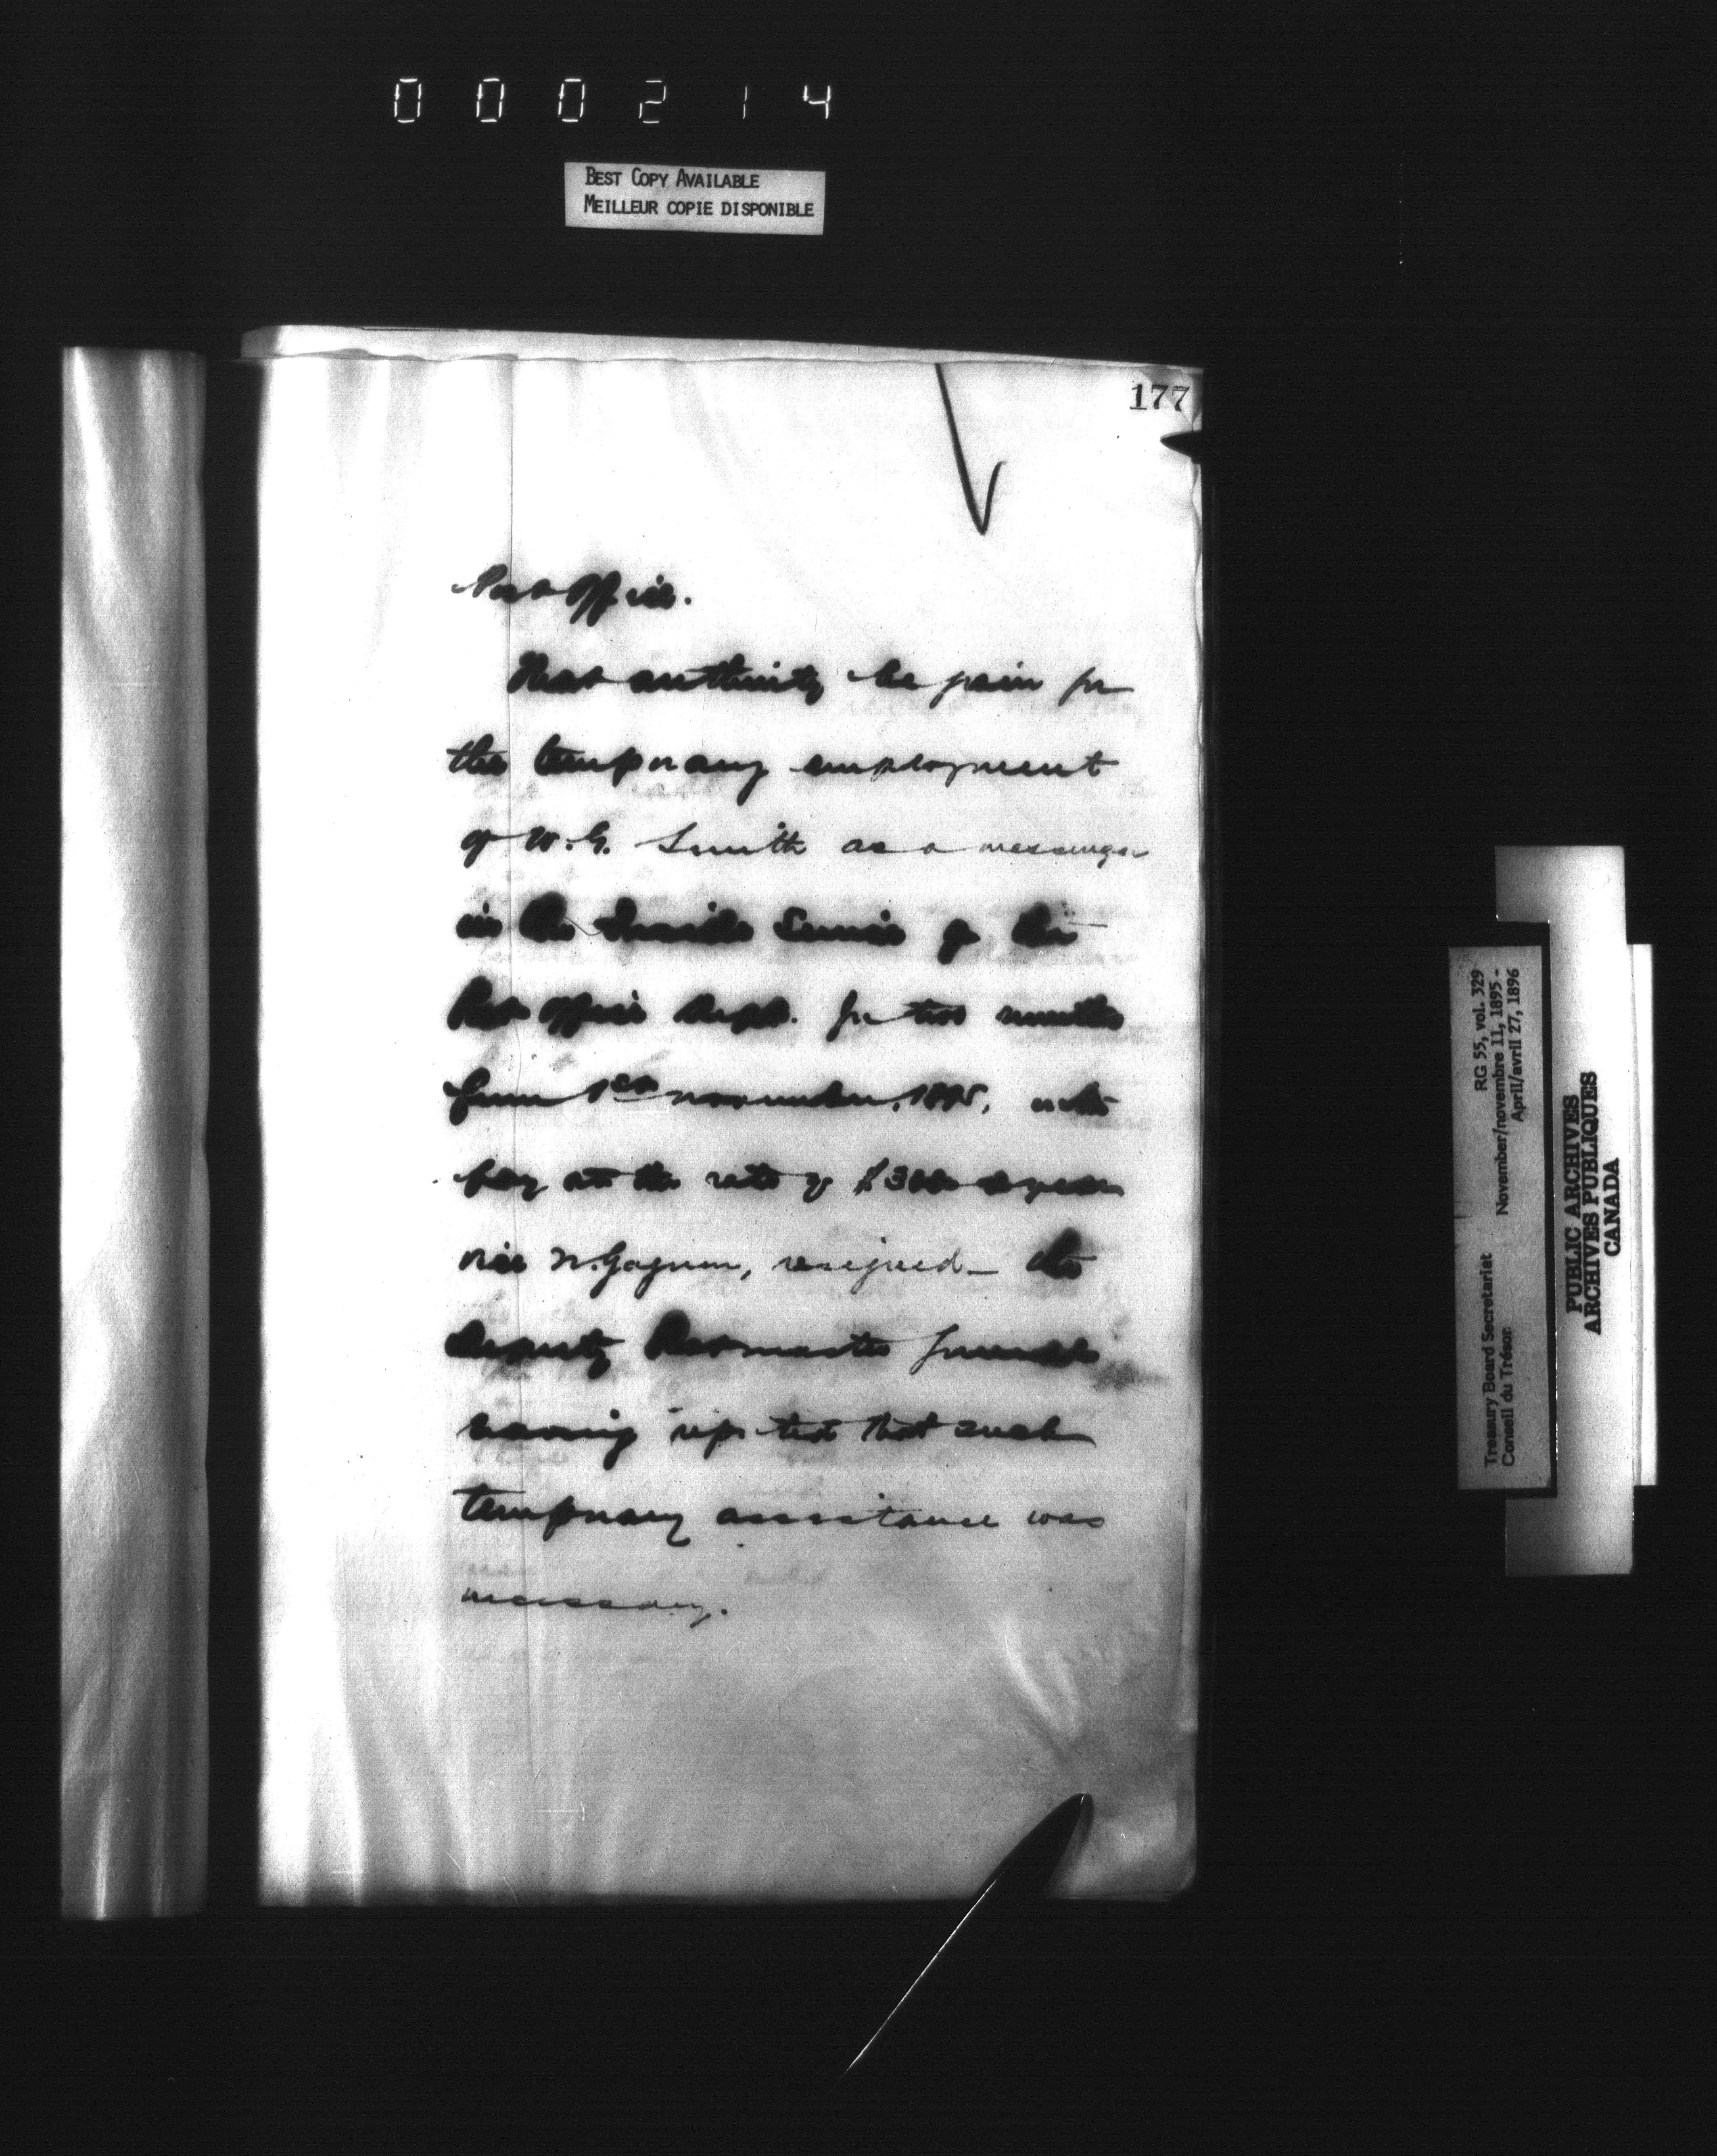 000214
BEST COPY AVAILABLE
MEILLEUR COPIE DISPONIBLE
177
Post Office.
That authority be given for
the temporary employment
of W.G. Smith as a messenger
in the Inside Service of the
Post Office Dept. for two months
from 1st November, 1895, with
pay at the rate of $300 a year
vice N. Gagnon, resigned_ the
Deputy Postmaster General
having reported that such
temporary assistance was
necessary.
Treasury Board Secretariat RG 55, vol. 329
Conseil du Trésor November/novembre 11, 1895 -
April/avril 27, 1896
PUBLIC ARCHIVES
ARCHIVES PUBLIQUES
CANADA